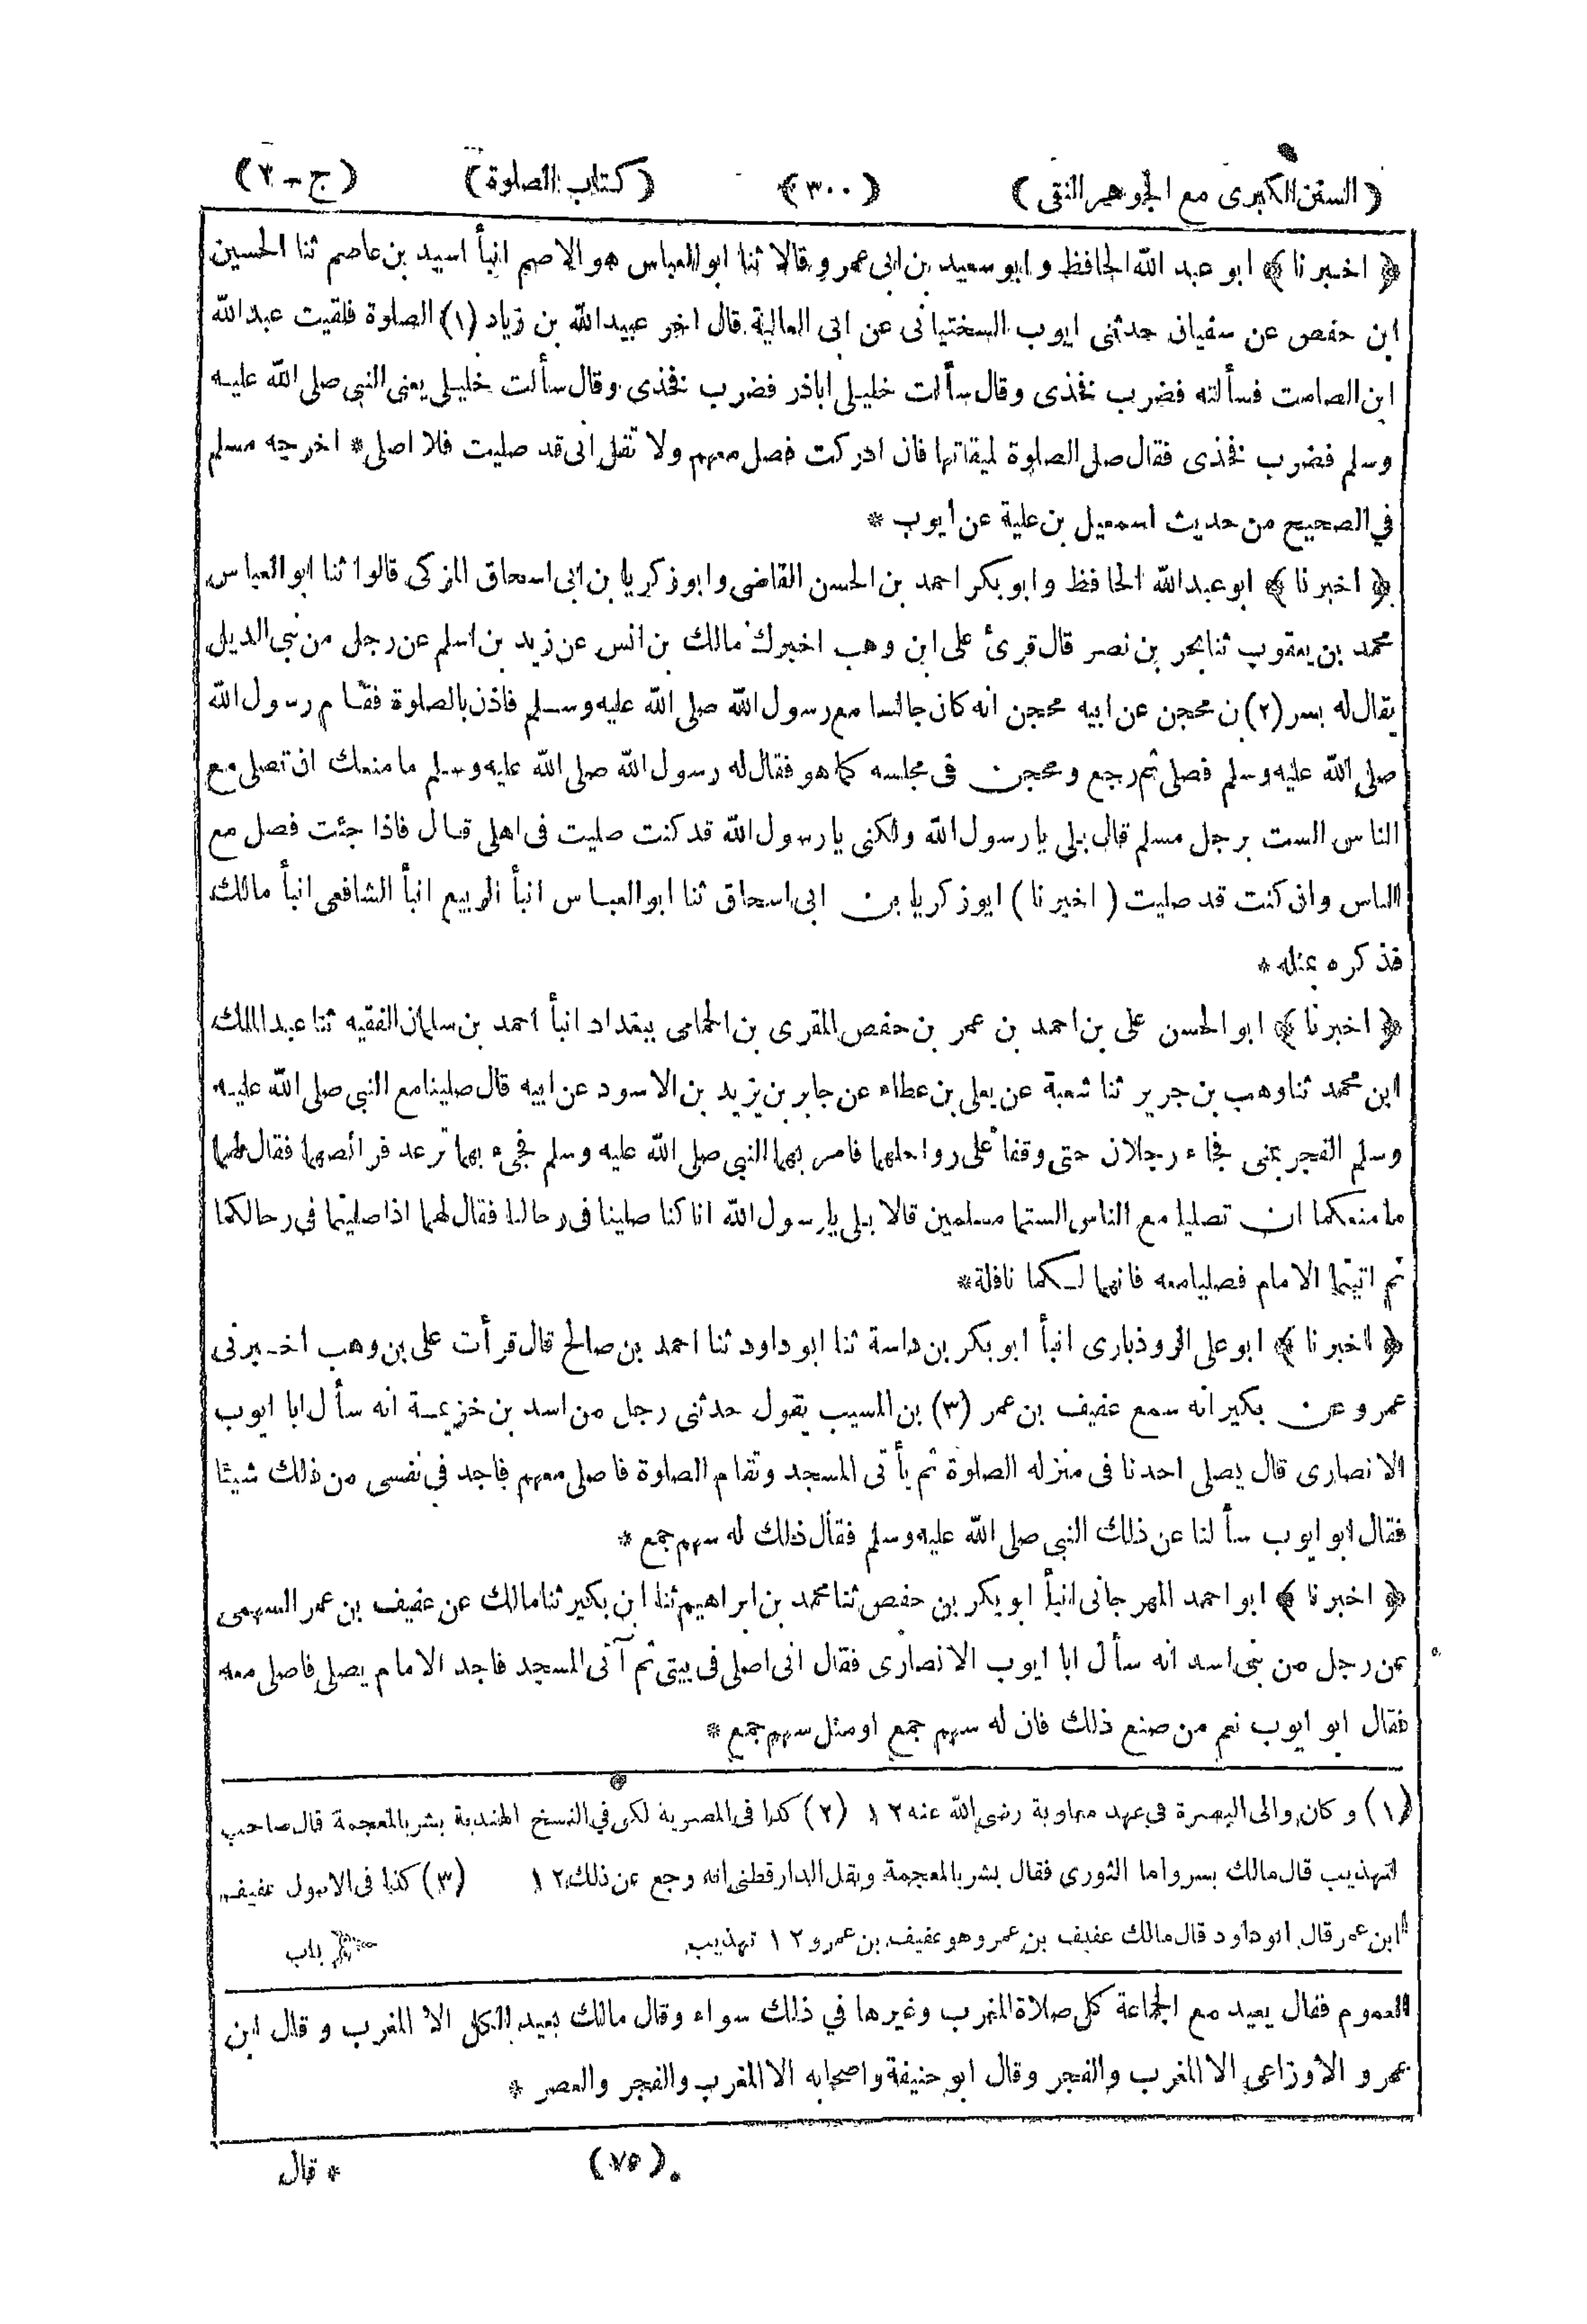 (السنن الكبرى مع الجوهر النقى) (٣٠٠) (كتاب الصلوة) (ج - ٢)
﴿ اخبرنا ﴾ ابو عبد الله الحافظ و ابو سعيد بن ابى عمرو قالا ثنا ابو العباس هو الاصم انبأ اسيد بن عاصم ثنا الحسين
ابن حفص عن سفيان حدثنى ايوب السختيانى عن ابى العالية قال اخر عبيد الله بن زياد (١) الصلوة فلقيت عبد الله
ابن الصامت فسألته فضرب فخذى وقال سألت خليلى اباذر فضرب فخذى وقال سألت خليلى يعنى النبى صلى الله عليه
وسلم فضرب فخذى فقال صلى الصلوة لميقاتها فان ادركت فصل معهم ولا تقل انى قد صليت فلا اصلى * اخرجه مسلم
في الصحيح من حديث اسمعيل بن علية عن ايوب *
﴿ اخبرنا ﴾ ابو عبد الله الحافظ و ابو بكر احمد بن الحسن القاضى و ابو زكريا بن ابى اسحاق المزكى قالوا ثنا ابو العباس
محمد بن يعقوب ثنا بحر بن نصر قال قرئ على ابن وهب اخبرك مالك بن انس عن زيد بن اسلم عن رجل من بنى الديل
يقال له بسر (٢) بن محجن عن ابيه محجن انه كان جالسا مع رسول الله صلى الله عليه وسلم فاذن بالصلوة فقام رسول الله
صلى الله عليه وسلم فصلى ثم رجع و محجن فى مجلسه كما هو فقال له رسول الله صلى الله عليه وسلم ما منعك ان تصلى مع
الناس الست برجل مسلم قال بلى يا رسول الله ولكنى يا رسول الله قد كنت صليت فى اهلى قال فاذا جئت فصل مع
الناس وان كنت قد صليت ( اخبرنا ) ابو زكريا بن ابى اسحاق ثنا ابو العباس انبأ الربيع انبأ الشافعى انبأ مالك
فذكره بمثله *
﴿ اخبرنا ﴾ ابو الحسن على بن احمد بن عمر بن حفص المقرى بن الحمامى ببغداد انبأ احمد بن سلمان الفقيه ثنا عبد الملك
ابن محمد ثنا وهب بن جرير ثنا شعبة عن يعلى بن عطاء عن جابر بن يزيد بن الاسود عن ابيه قال صلينا مع النبى صلى الله عليه
وسلم الفجر بمنى فجاء رجلان حتى وقفا على رواحلهما فامر بهما النبى صلى الله عليه وسلم فجىء بهما ترعد فرائصهما فقال لهما
ما منعكما ان تصليا مع الناس الستما مسلمين قالا بلى يا رسول الله انا كنا صلينا فى رحالنا فقال لهما اذا صليتما فى رحالكما
ثم اتيتما الامام فصليا معه فانها لكما نافلة*
﴿ اخبرنا ﴾ ابو على الروذبارى انبأ ابو بكر بن داسة ثنا ابو داود ثنا احمد بن صالح قال قرأت على بن وهب اخبرنى
عمرو عن بكير انه سمع عفيف بن عمر (٣) بن المسيب يقول حدثنى رجل من اسد بن خزيمة انه سأل ابا ايوب
الانصارى قال يصلى احدنا فى منزله الصلوة ثم يأتى المسجد وتقام الصلوة فاصلى معهم فاجد في نفسى من ذلك شيئا
فقال ابو ايوب سألنا عن ذلك النبى صلى الله عليه وسلم فقال ذلك له سهم جمع *
﴿ اخبرنا ﴾ ابو احمد المهرجانى انبأ ابو بكر بن حفص ثنا محمد بن ابراهيم ثنا ابن بكير ثنا مالك عن عفيف بن عمر السهمى
عن رجل من بنى اسد انه سأل ابا ايوب الانصارى فقال انى اصلى فى بيتى ثم آتى المسجد فاجد الامام يصلى فاصلى معه
فقال ابو ايوب نعم من صنع ذلك فان له سهم جمع او مثل سهم جمع *
(١) و كان والى البصرة في عهد معاوية رضى الله عنه ١٢ (٢) كذا فى المصرية لكن في النسخ الهندية بشر بالمعجمة قال صاحب
التهذيب قال مالك بسر واما الثورى فقال بشر بالمعجمة ونقل الدارقطنى انه رجع عن ذلك ١٢ (٣) كذا فى الاصول عفيف
ابن عمر قال ابو داود قال مالك عفيف بن عمر وهو عفيف بن عمرو ١٢ تهذيب باب
العموم فقال يعيد مع الجماعة كل صلاة المغرب وغيرها في ذلك سواء وقال مالك يعيد الكل الا المغرب و قال ابن
عمر و الاوزاعى الا المغرب والفجر وقال ابو حنيفة واصحابه الا المغرب والفجر والعصر *
(٧٥) * قال